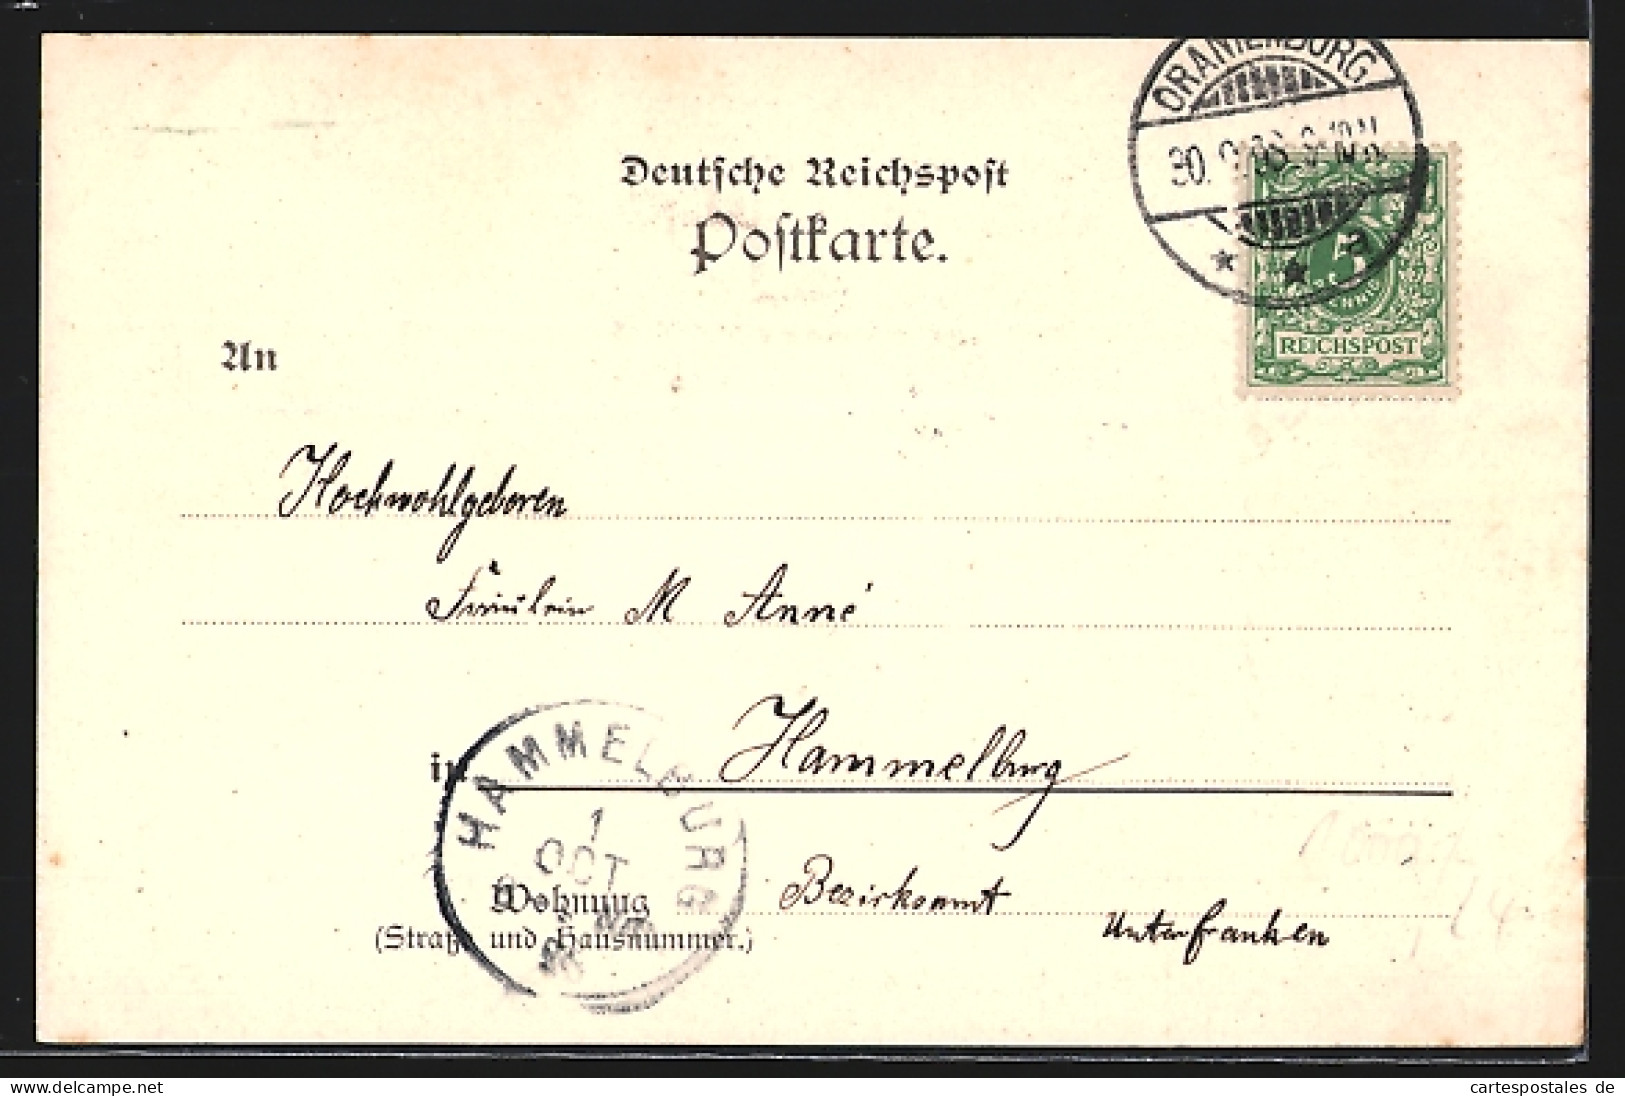 ORANIENBURG
30. 9. 98
a
Deutsche Reichspost
Postkarte.
5
PFENNIG
REICHSPOST
An
Hochwohlgeboren
Fräulein M Anné
in Hammelburg
HAMMELBURG
1
OCT
Wohnung Bezirksamt
(Straße und Hausnummer.)
Unterfranken
cartespostales de